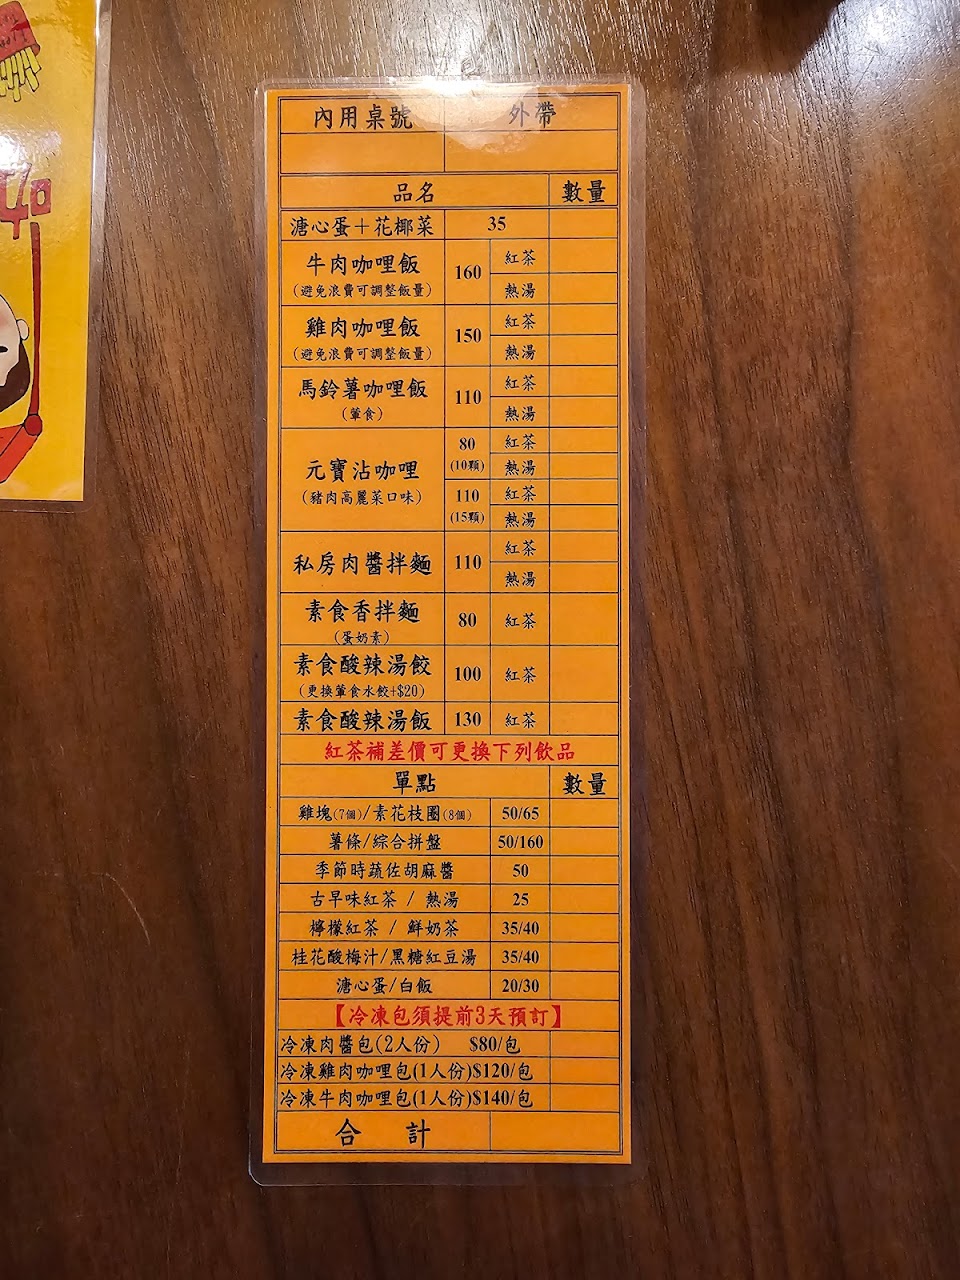 內用桌號 外帶
品名 數量
溏心蛋＋花椰菜 35
牛肉咖哩飯 160 紅茶
(避免浪費可調整飯量) 熱湯
雞肉咖哩飯 150 紅茶
(避免浪費可調整飯量) 熱湯
馬鈴薯咖哩飯 110 紅茶
(葷食) 熱湯
元寶沾咖哩 80 紅茶
(豬肉高麗菜口味) (10顆) 熱湯
110 紅茶
(15顆) 熱湯
私房肉醬拌麵 110 紅茶
熱湯
素食香拌麵 80 紅茶
(蛋奶素)
素食酸辣湯餃 100 紅茶
(更換葷食水餃+$20)
素食酸辣湯飯 130 紅茶
紅茶補差價可更換下列飲品
單點 數量
雞塊(7個)/素花枝圈(8個) 50/65
薯條/綜合拼盤 50/160
季節時蔬佐胡麻醬 50
古早味紅茶 / 熱湯 25
檸檬紅茶 / 鮮奶茶 35/40
桂花酸梅汁/黑糖紅豆湯 35/40
溏心蛋/白飯 20/30
【冷凍包須提前3天預訂】
冷凍肉醬包(2人份) $80/包
冷凍雞肉咖哩包(1人份)$120/包
冷凍牛肉咖哩包(1人份)$140/包
合 計